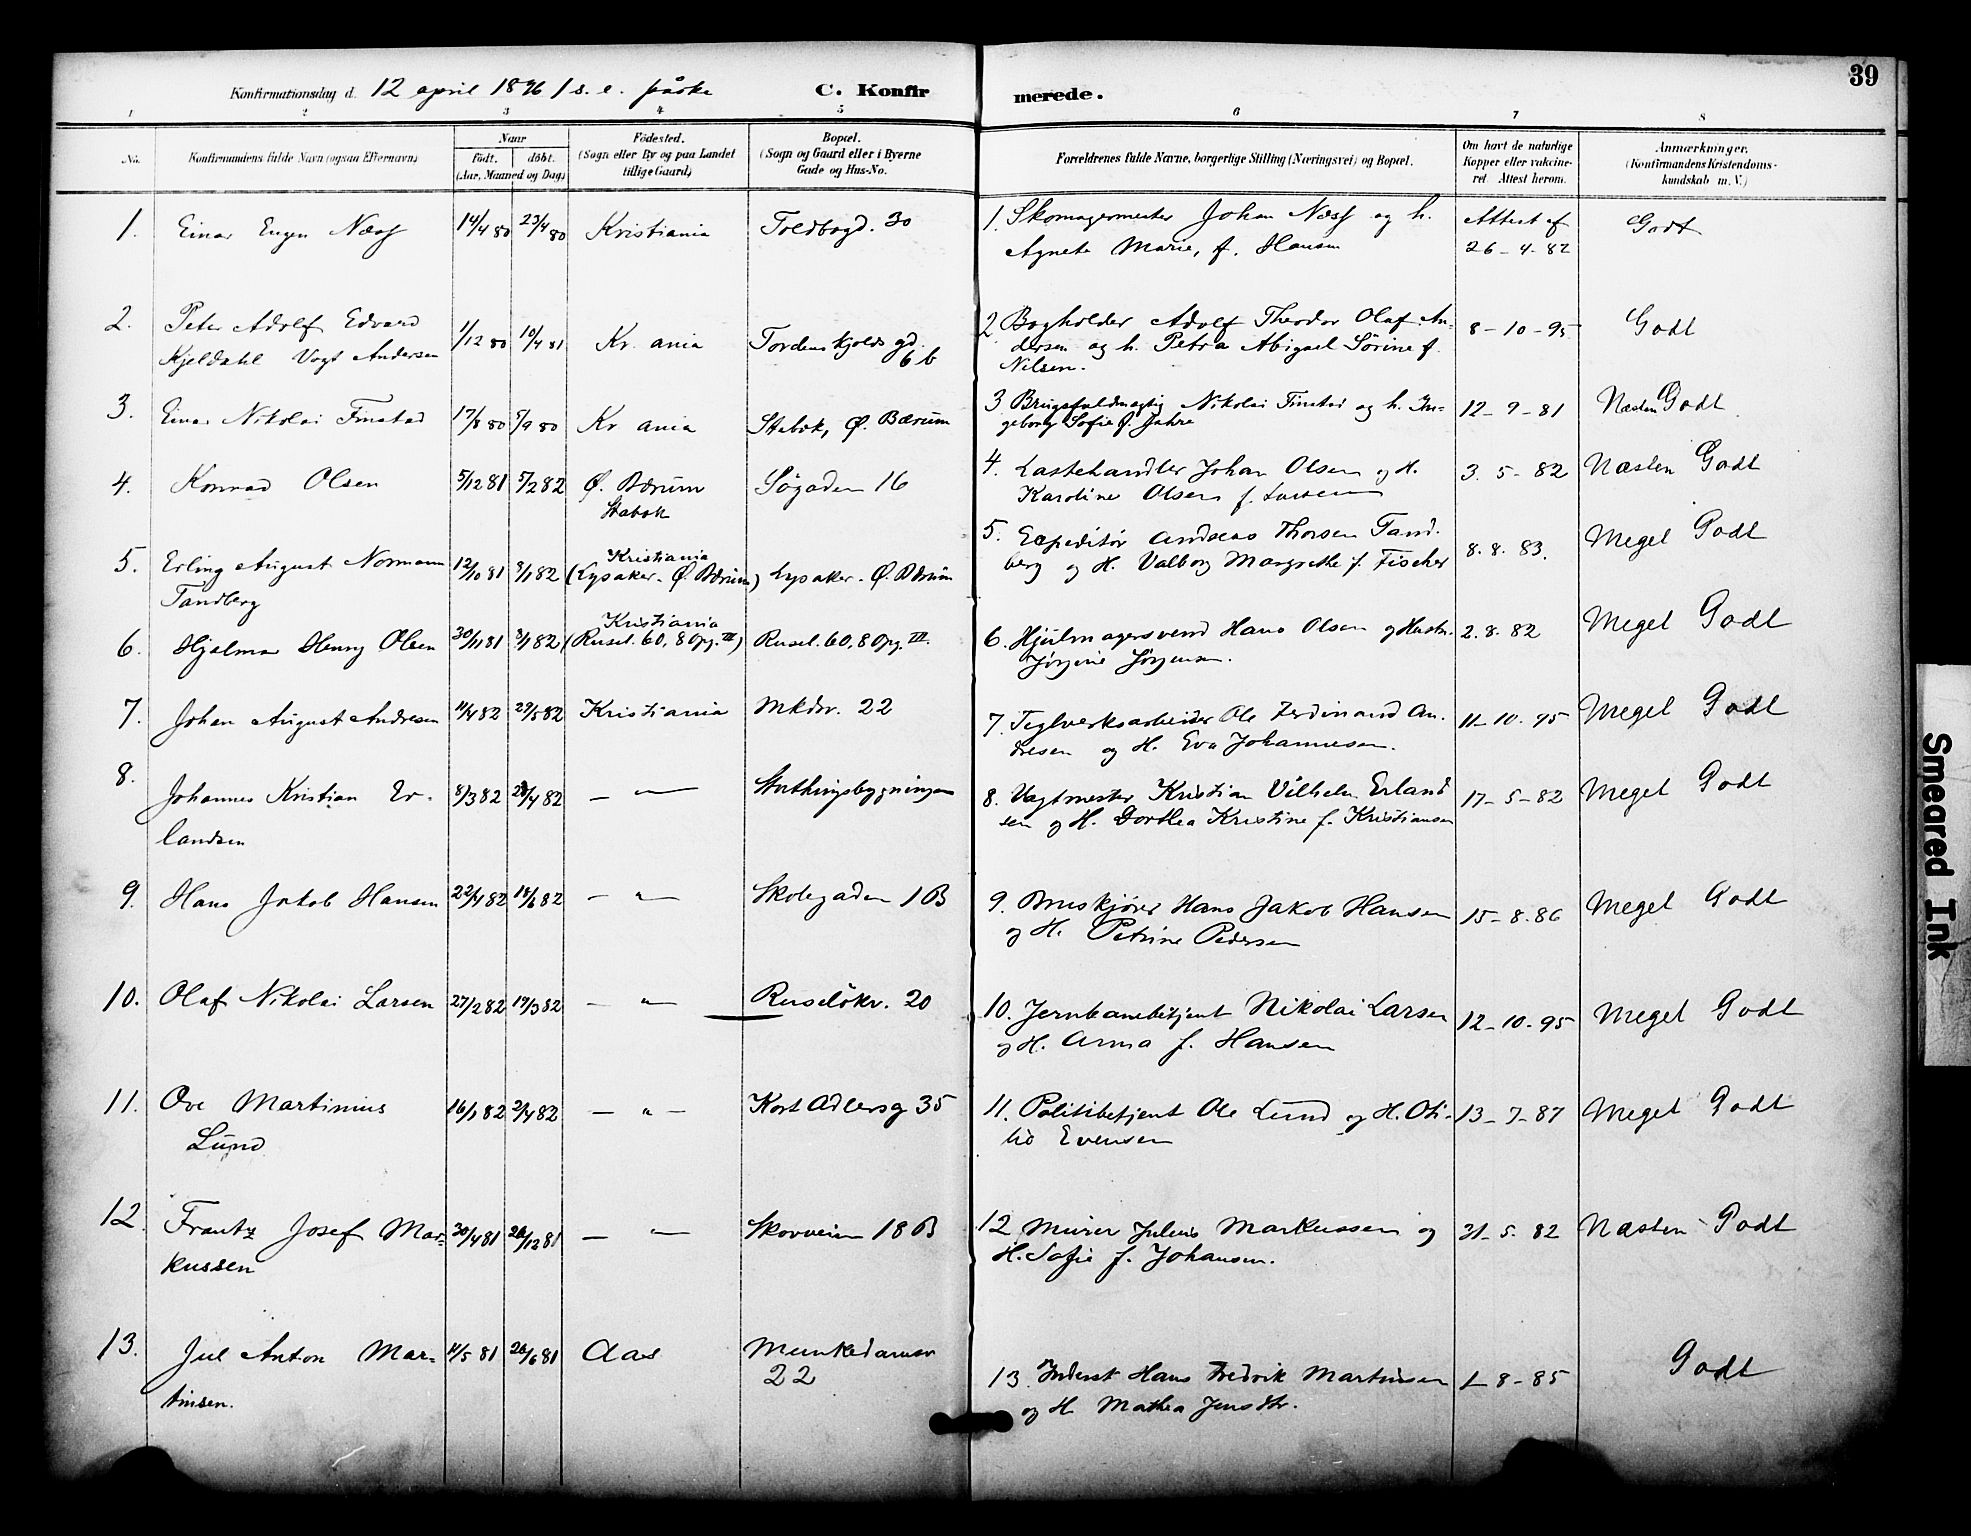 39
Konfirmationsdag d. 12 april 1896 1 s. e. påske
C. Konfirmerede.
1 2 3 4 5 6 7 8
No.
Konfirmandens fulde Navn (ogsaa Efternavn)
Naar
födt. döbt.
(Aar, Maaned og Dag)
Födested.
(Sogn eller By og paa Landet
tillige Gaard)
Bopæl.
(Sogn og Gaard eller i Byerne
Gade og Hus-No.
Forældrenes fulde Navne, borgerlige Stilling (Næringsvei) og Bopæl.
Om havt de naturlige
Kopper eller vakcine-
ret. Attest herom.
Anmærkninger.
(Konfirmandens Kristendoms-
kundskab m. V.)
1. Einar Eugen Næss 14/4 80 23/4 80 Kristiania Toldbogd. 30
1. Skomagermester Johan Næss og h. Attest af Godt
Agnete Marie, f. Hansen 26-4-82
2. Peter Adolf Edvard
Kjeldahl Vogt Andersen 1/12 80 10/4 81 Kr. ania Tordenskjolds gd.
6 b
2 Bogholder Adolf Theodor Olaf An- 8-10-95 Godt
dersen og h. Petra Abigael Sörine f.
Nilsen.
3. Einar Nikolai Finstad 17/8 80 5/9 80 Kr ania Stabæk, Ø. Bærum
3 Brugsfuldmægtig Nikolai Finstad og h. In- 12-9-81 Næsten Godt
geborg Sofie f. Jahre
4. Konrad Olsen 5/12 81 5/2 82 Ø. Bærum Sögaden 16
Stabæk
4. Lastehandler Johan Olsen og H. 3. 5-82 Næsten Godt
Karoline Olsen f. Larsen
5. Erling August Normann 12/10 81 8/1 82 Kristiania
(Lysaker- Ø. Bærum) Lysaker- Ø. Bærum
Tandberg
5. Expeditör Andreas Thorsen Tand- 8. 8. 83. Meget Godt
berg og H. Valborg Margrethe f. Fischer
6. Hjalmar Henry Olsen 30/11 81 8/1 82 Kristiania
(Rusel. 60, 8 Opg. III) Rusel. 60, 8 Opg. III.
6. Hjulmagersvend Hans Olsen og Hustr. 2. 8. 82 Meget Godt
Jörgine Jörgensen.
7. Johan August Andresen 11/4 82 29/5 82 Kristiania Mkdv. 22
7. Teglverksarbeider Ole Ferdinand An- 11-10. 95 Meget Godt
dresen og H. Eva Johannesen.
8. Johannes Kristian Er- 8/3 82 /4 82 — " — Stortingsbygningen
landsen
8. Vagtmester Kristian Vilhelm Erland 17-5-82 Meget Godt
sen og H. Dorthea Kristine f. Kristiansen
9. Hans Jakob Hansen 22/4 82 18/6 82 — " — Skolegaden 1 B
9. Bruskjører Hans Jakob Hansen 15-8. 86 Meget Godt
og H. Petrine Pedersen
10. Olaf Nikolai Larsen 27/2 82 19/3 82 — " — Ruselökv. 20
10. Jernbanebetjent Nikolai Larsen 12-10-95 Meget Godt
og H. Anna f. Hansen
11. Ove Martinius 16/1 82 2/4 82 — " — Kort Adlersg 35
Lund
11. Politibetjent Ole Lund og H. Oti- 13-7-87 Meget Godt
lia Evensen
12. Frantz Josef Mar- 30/4 81 26/12 81 — " — Skovveien 18 B
kussen
12 Murer Julius Markussen og 31-5-82 Næsten Godt
H. Sofie f. Johansen.
13. Jul Anton Mar- 11/5 81 26/6 81 Aas Munkedamsv
tinsen. 22
13. Inderst Hans Fredrik Martinsen 1-8-85 Godt
og H Mathea Jensdtr.
Smeared Ink